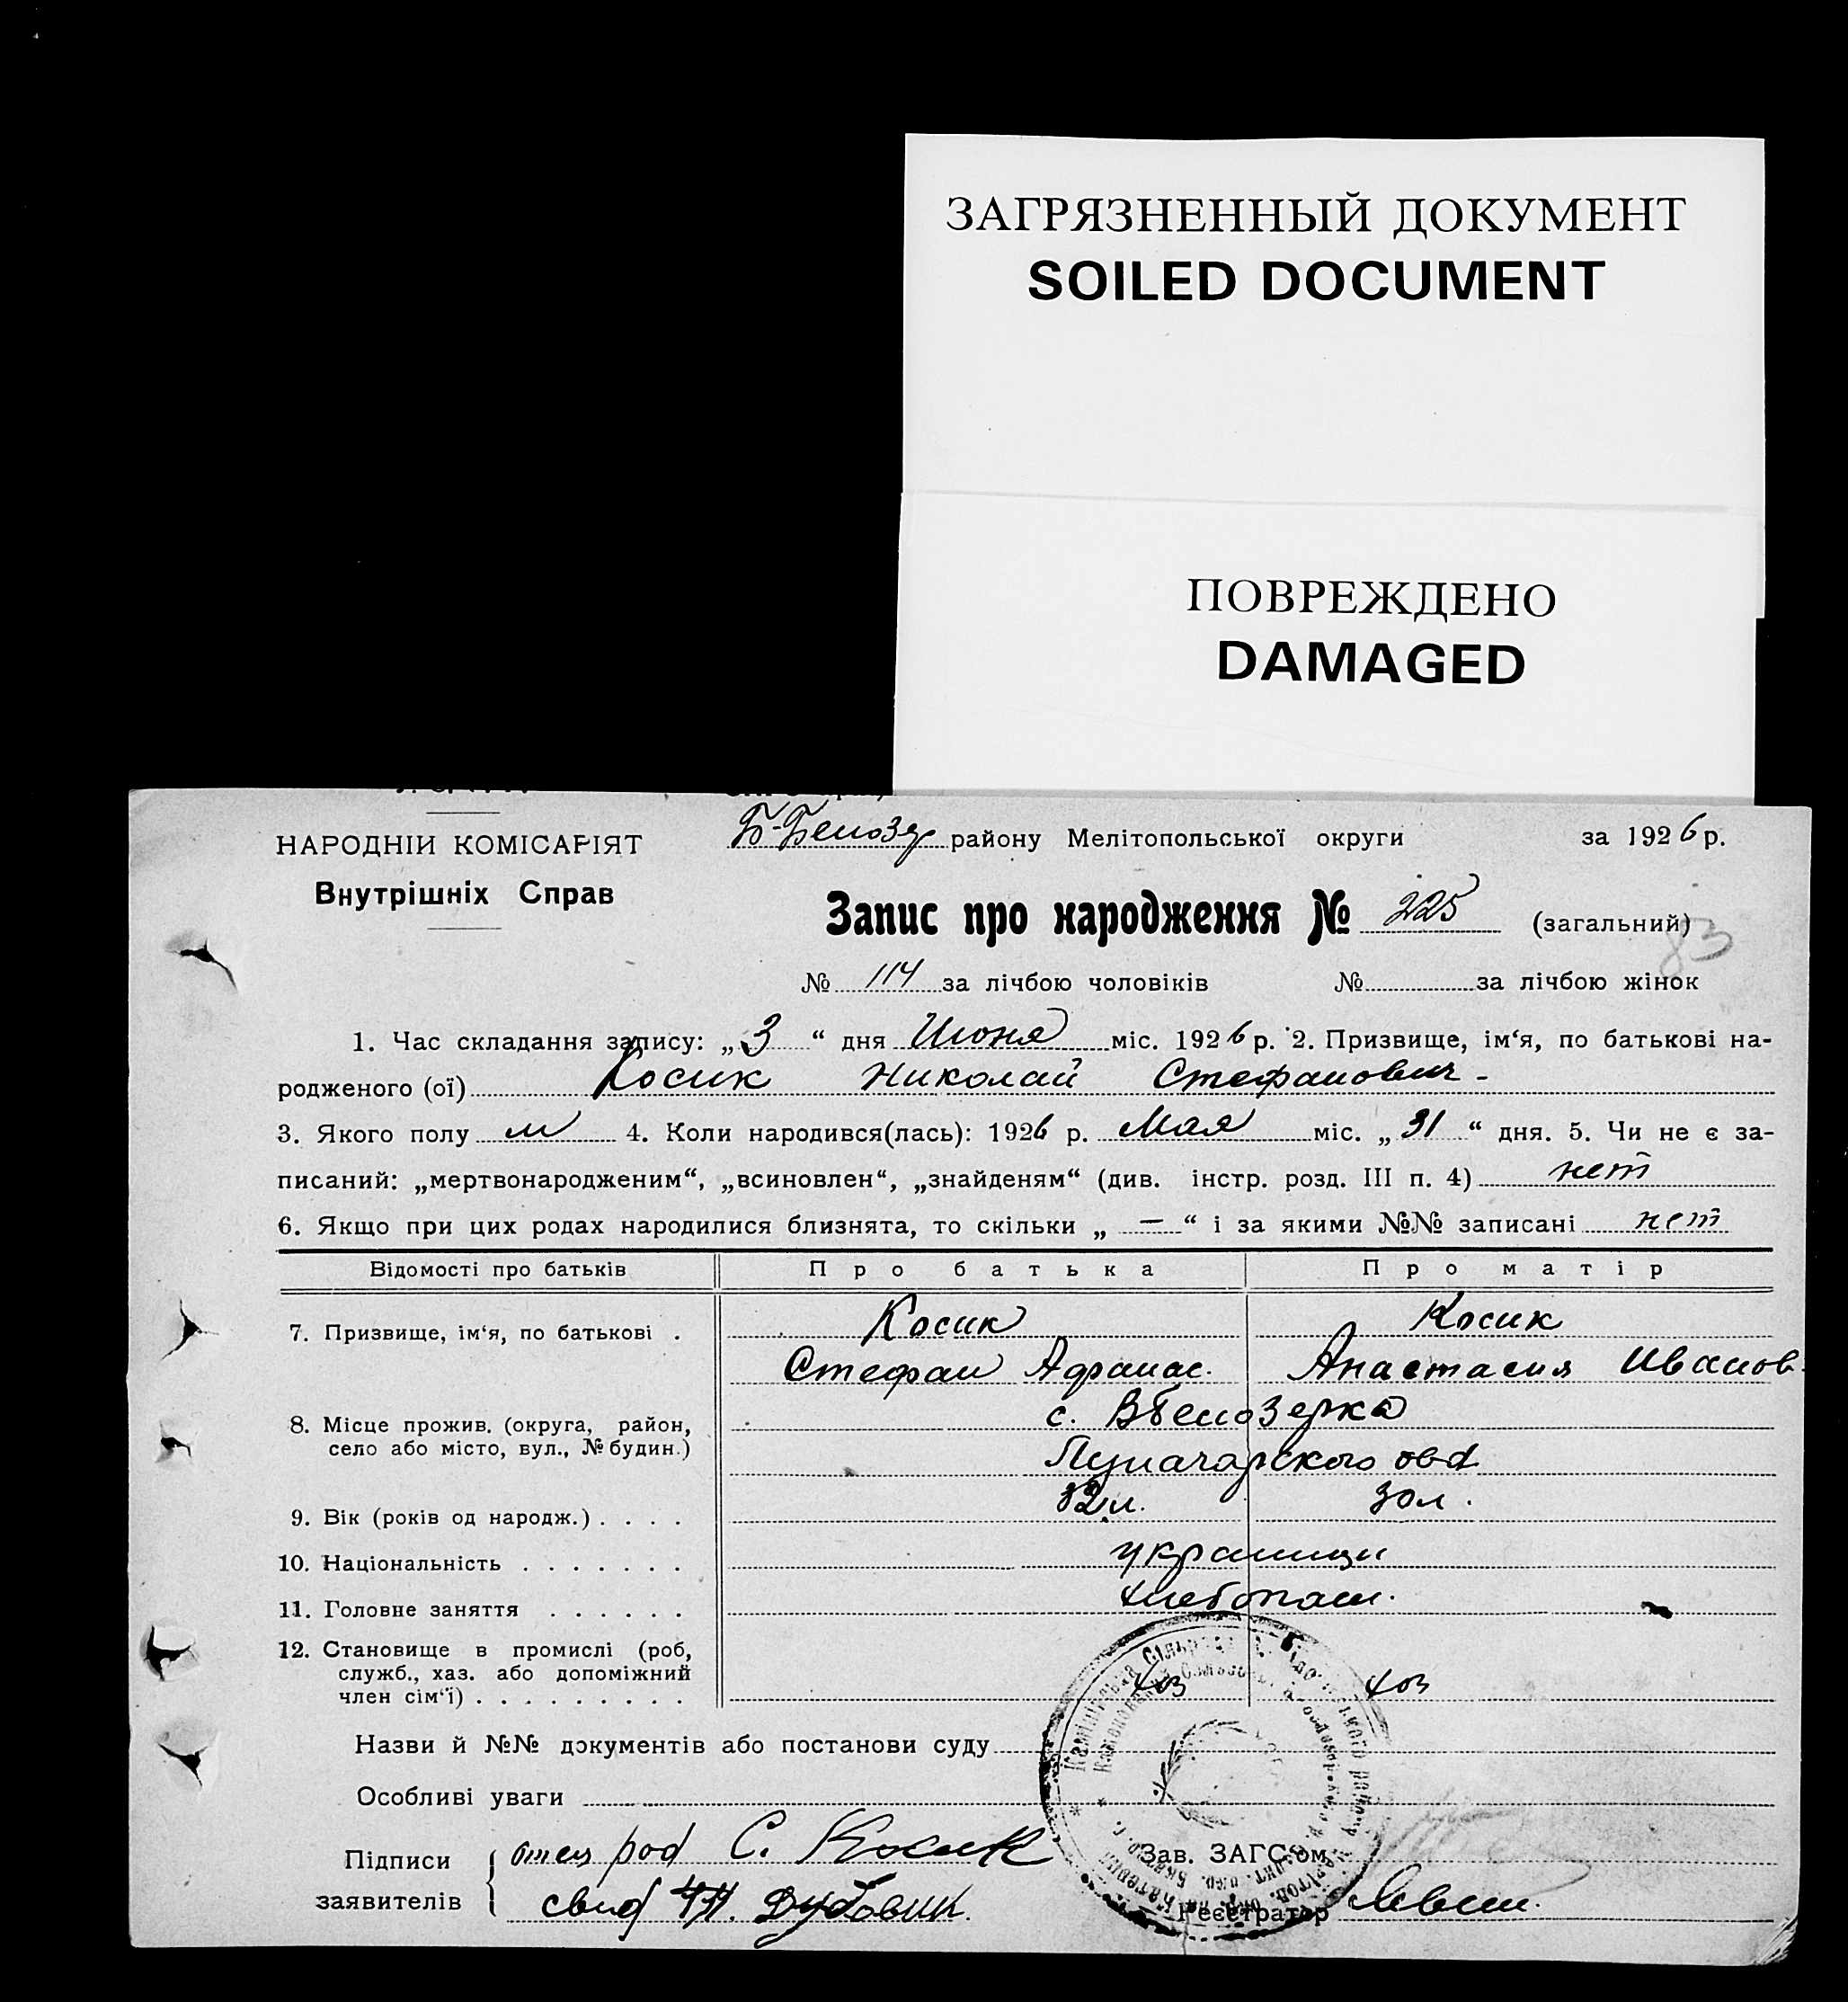 ЗАГРЯЗНЕННЫЙ ДОКУМЕНТ
SOILED DOCUMENT
ПОВРЕЖДЕНО
DAMAGED
НАРОДНІЙ КОМІСАРІЯТ
Внутрішніх Справ
Б-Белозер району Мелітопольської округи за 1926 р.
Запис про народження № 225 (загальний)
83
№ 114 за лічбою чоловіків № за лічбою жінок
1. Час складання запису: „3“ дня Июня міс. 1926 р. 2. Призвище, ім‘я, по батькові на-
родженого (ої) Косик Николай Стефанович -
3. Якого полу м 4. Коли народився(лась): 1926 р. Мая міс. „31“ дня. 5. Чи не є за-
писаний: „мертвонародженим“, „всиновлен“, „знайденям“ (див. інстр. розд. III п. 4) нет
6. Якщо при цих родах народилися близнята, то скільки „ — “ і за якими №№ записані нет
Відомості про батьків Про батька Про матір
7. Призвище, ім‘я, по батькові . Косик Косик
Стефан Афанас. Анастасия Иванов.
8. Місце прожив. (округа, район, с. ВБелозерка
село або місто, вул., № будин.)
Луначарского
9. Вік (років од народж.) . . . . 32 л. 30 л.
10. Національність . . . . . . . украинцы
11. Головне заняття . . . . . . хлебопаш.
12. Становище в промислі (роб,
служб., хаз. або допоміжний хоз хоз
член сім‘ї) . . . . . . . . .
Назви й №№ документів або постанови суду
Особливі уваги
Підписи отец род С. Косик Зав. ЗАГС‘ом
заявителів свид Дубовик. Реєстратор